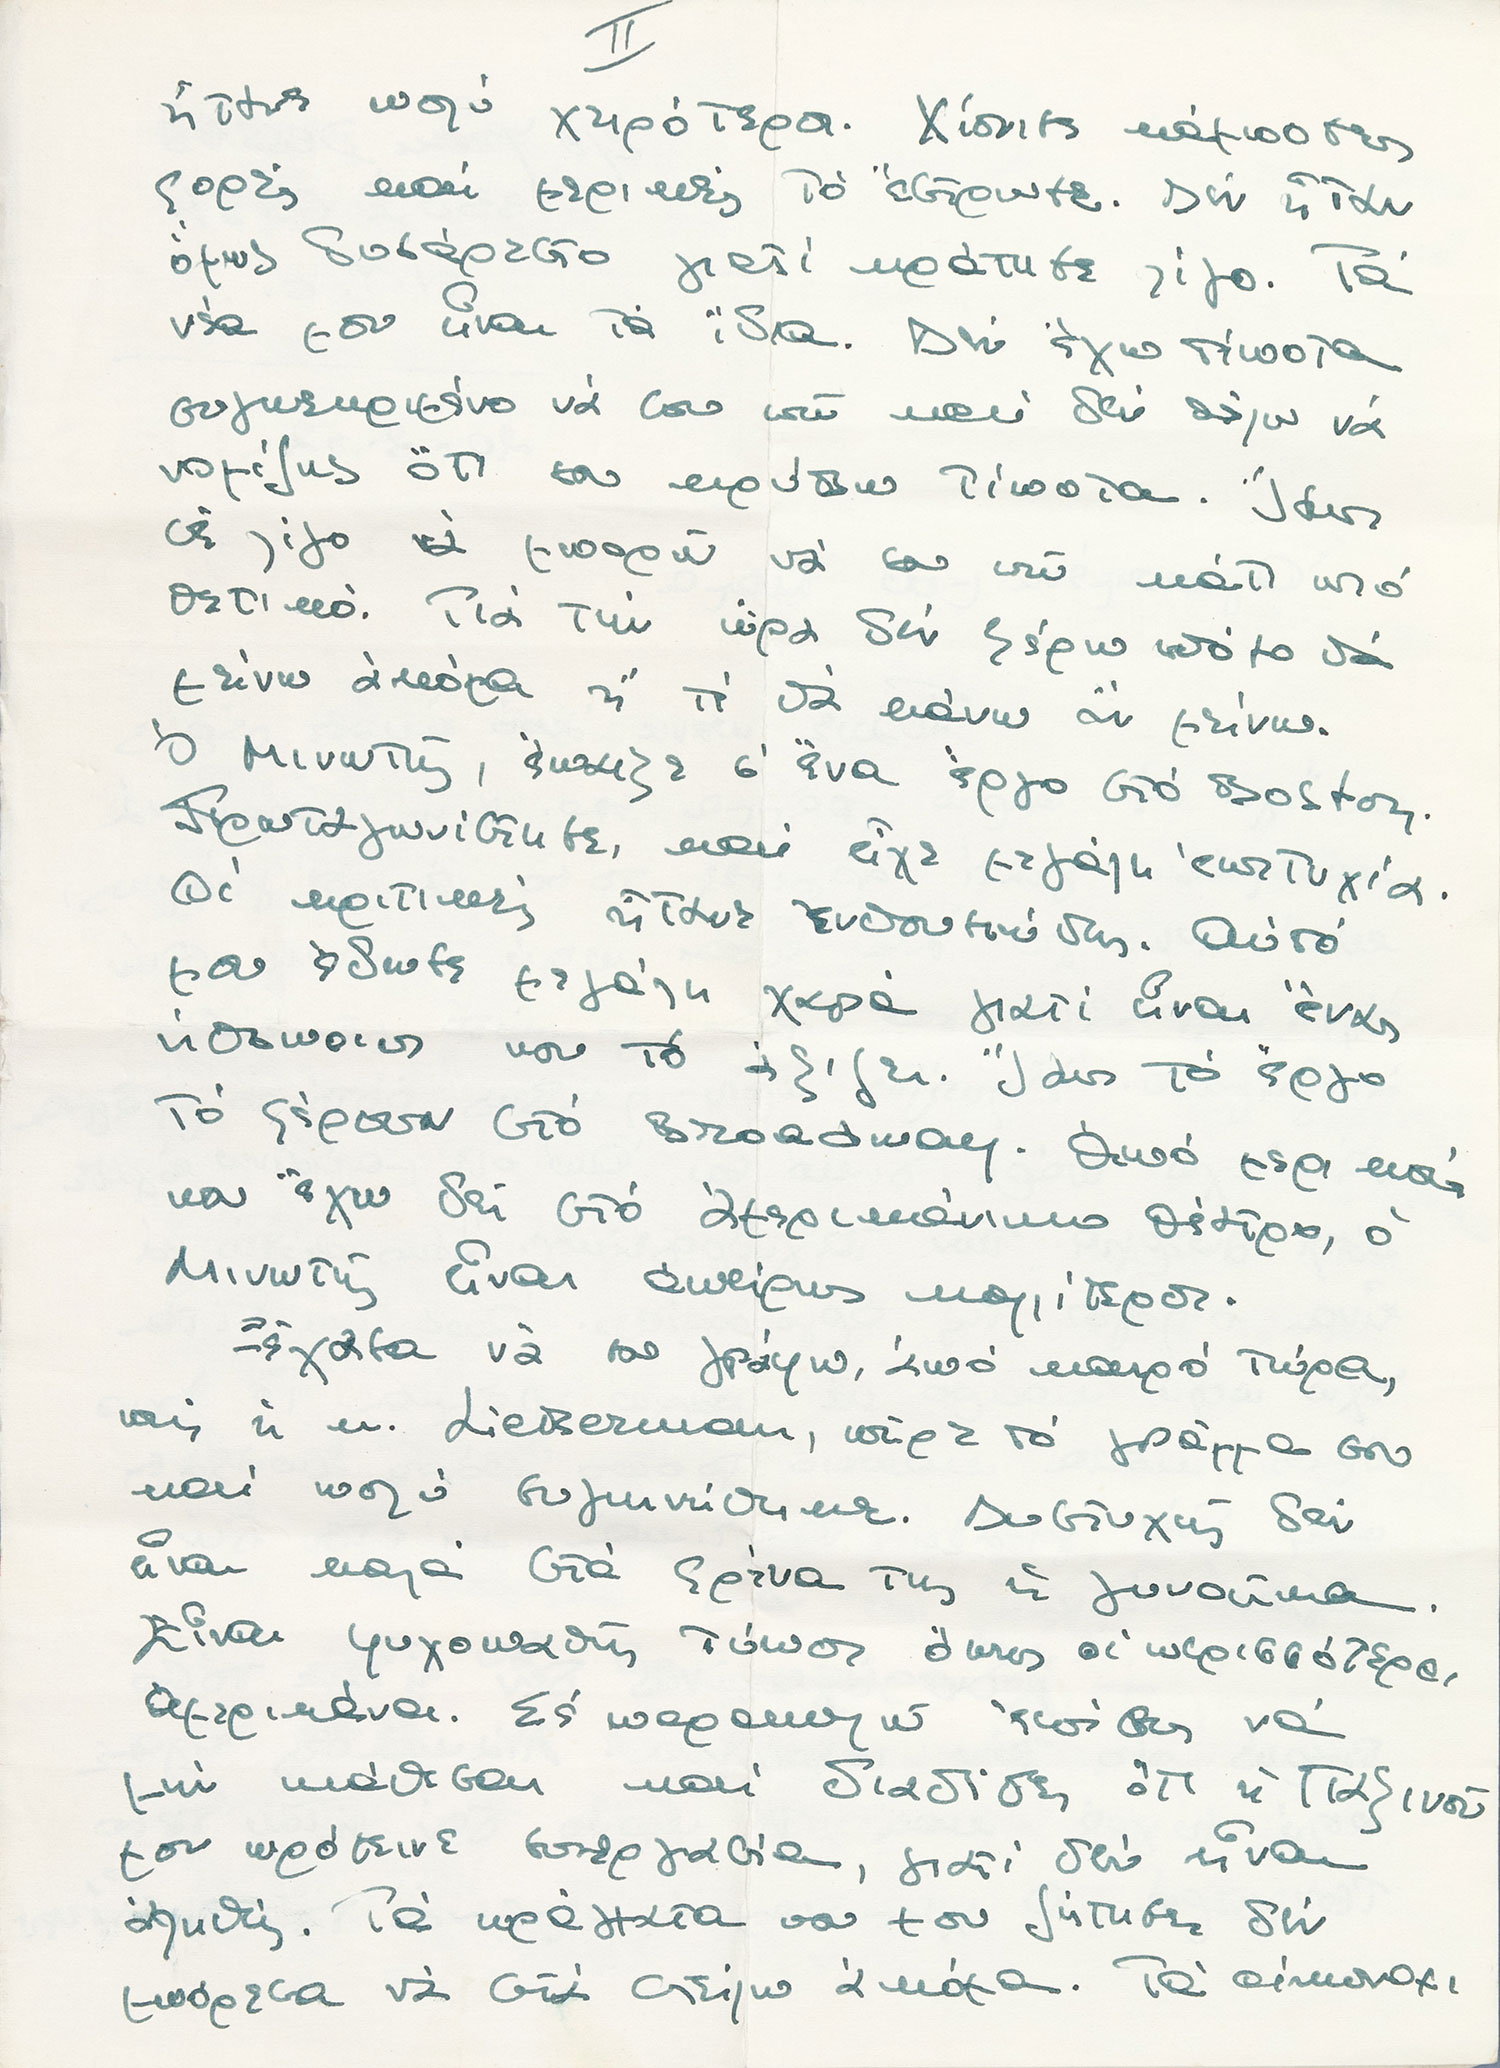 II
ἤτανε πολύ χειρότερα. Χίονισε κάμποσες
φορές καί μερικές τό ἔστρωσε. Δέν ἦταν
ὅμως δυσάρεστο γιατί κράτησε λίγο. Τά
νέα μου εἶναι τά ἴδια. Δέν ἔχω τίποτα
συγκεκριμένο νά σου πῶ καί δέν θέλω νά
νομίζης ὅτι σου κρύβω τίποτα. Ἴσως
σέ λίγο νά μπορῶ νά σου πῶ κάτι πιό
θετικό. Γιά τήν ὥρα δέν ξέρω πόσο θά
μείνω ἀκόμα ἤ τί θά κάνω ἄν μείνω.
Ὁ Μινωτής, ἔπαιξε σ' ἕνα ἔργο στό Boston.
Πρωταγωνίστησε, καί εἶχε μεγάλη ἐπιτυχία.
Οἱ κριτικές ἤτανε ἐνθουσιώδης. Αὐτό
μου ἔδωσε μεγάλη χαρά γιατί εἶναι ἕνας
ἠθοποιος που τό ἀξίζει. Ἴσως τό ἔργο
τό φέρουν στό Broadway. Ἀπό μερικούς
που ἔχω δεῖ στό Ἀμερικάνικο θέατρο, ὁ
Μινωτής εἶναι ἀπείρως καλλίτερος.
Ξέχασα νά σου γράψω, ἀπό καιρό τώρα,
πώς ἡ κ. Lieberman, πῆρε τό γράμμα σου
καί πολύ συγκινήθηκε. Δυστυχῶς δέν
εἶναι καλά στά φρένα της ἡ γυναῖκα.
Εἶναι ψυχοπαθής τύπος ὅπως οἱ περισσότεροι
Ἀμερικάνοι. Σέ παρακαλῶ ἐπίσης νά
μήν κάθεσαι καί διαδίδεις ὅτι ἡ Παξινοῦ
μου πρότεινε συνεργασία, γιατί δέν εἶναι
ἀληθές. Τά πράγματα που μου ζήτησες δέν
μπόρεσα νά στά στείλω ἀκόμα. Τά οἰκονομι